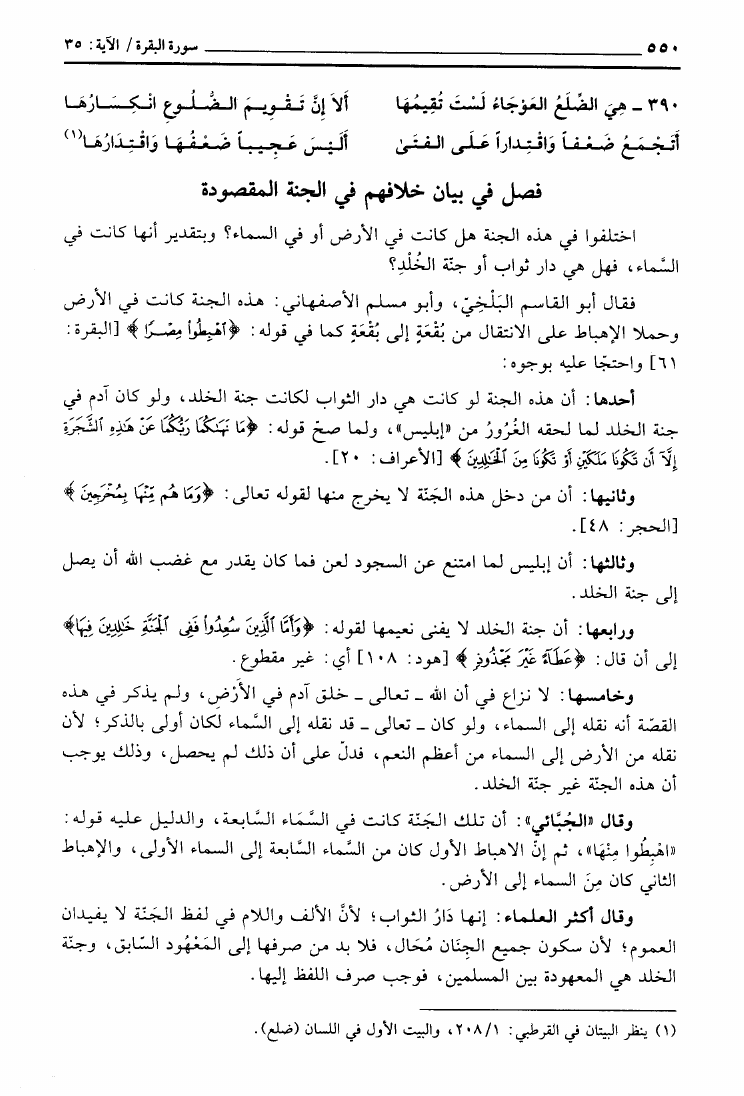 ٥٥٠ سورة البقرة / الآية: ٣٥
٣٩٠ ـ هِيَ الضِّلَعُ العَوْجَاءُ لَسْتَ تُقِيمُهَا أَلاَ إِنَّ تَقْوِيمَ الضُّلُوعِ انْكِسَارُهَا
أَتَجْمَعُ ضَعْفاً وَاقْتِداراً عَلَى الفَتَىٰ أَلَيْسَ عَجِيباً ضَعْفُهَا وَاقْتِدَارُهَا(١)
فصل في بيان خلافهم في الجنة المقصودة
اختلفوا في هذه الجنة هل كانت في الأرض أو في السماء؟ وبتقدير أنها كانت في
السَّماء، فهل هي دار ثواب أو جنّة الخُلْدِ؟
فقال أبو القاسم البَلْخِيّ، وأبو مسلم الأصفهاني: هذه الجنة كانت في الأرض
وحملا الإهباط على الانتقال من بُقْعَةٍ إلى بُقْعَةٍ كما في قوله: ﴿ٱهْبِطُواْ مِصْرًا﴾ [البقرة:
٦١] واحتجّا عليه بوجوه:
أحدها: أن هذه الجنة لو كانت هي دار الثواب لكانت جنة الخلد، ولو كان آدم في
جنة الخلد لما لحقه الغُرُورُ من «إبليس»، ولما صحّ قوله: ﴿مَا نَهَىٰكُمَا رَبُّكُمَا عَنْ هَٰذِهِ ٱلشَّجَرَةِ
إِلَّآ أَن تَكُونَا مَلَكَيْنِ أَوْ تَكُونَا مِنَ ٱلْخَٰلِدِينَ﴾ [الأعراف: ٢٠].
وثانيها: أن من دخل هذه الجَنّة لا يخرج منها لقوله تعالى: ﴿وَمَا هُم مِّنْهَا بِمُخْرَجِينَ﴾
[الحجر: ٤٨].
وثالثها: أن إبليس لما امتنع عن السجود لعن فما كان يقدر مع غضب الله أن يصل
إلى جنة الخلد.
ورابعها: أن جنة الخلد لا يفنى نعيمها لقوله: ﴿وَأَمَّا ٱلَّذِينَ سُعِدُواْ فَفِى ٱلْجَنَّةِ خَٰلِدِينَ فِيهَا﴾
إلى أن قال: ﴿عَطَآءً غَيْرَ مَجْذُوذٍ﴾ [هود: ١٠٨] أي: غير مقطوع.
وخامسها: لا نزاع في أن الله ـ تعالى ـ خلق آدم في الأَرْضِ، ولم يذكر في هذه
القصّة أنه نقله إلى السماء، ولو كان ـ تعالى ـ قد نقله إلى السَّماء لكان أولى بالذكر؛ لأن
نقله من الأرض إلى السماء من أعظم النعم، فدلّ على أن ذلك لم يحصل، وذلك يوجب
أن هذه الجنّة غير جنّة الخلد.
وقال «الجُبَّائي»: أن تلك الجَنّة كانت في السَّمَاء السَّابعة، والدليل عليه قوله:
«اهْبِطُوا مِنْهَا»، ثم إنّ الاهباط الأول كان من السَّماء السَّابعة إلى السماء الأولى، والإهباط
الثاني كان مِنَ السماء إلى الأرض.
وقال أكثر العلماء: إنها دَارُ الثواب؛ لأنَّ الألف واللام في لفظ الجَنّة لا يفيدان
العموم؛ لأن سكون جميع الجِنَان مُحَال، فلا بد من صرفها إلى المَعْهُود السَّابق، وجنّة
الخلد هي المعهودة بين المسلمين، فوجب صرف اللفظ إليها.
(١) ينظر البيتان في القرطبي: ٢٠٨/١، والبيت الأول في اللسان (ضلع).